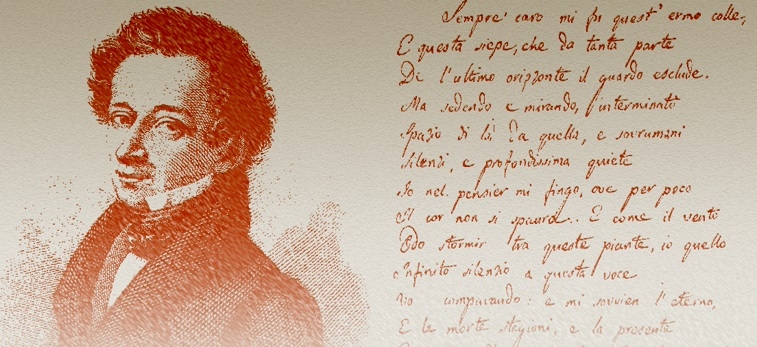 Sempre caro mi fu quest' ermo colle,
E questa siepe, che da tanta parte
De l'ultimo orizzonte il guardo esclude.
Ma sedendo e mirando, interminato
Spazio di là da quella, e sovrumani
Silenzi, e profondissima quiete
Io nel pensier mi fingo, ove per poco
Il cor non si spaura.. E come il vento
Odo stormir tra queste piante, io quello
Infinito silenzio a questa voce
Vo comparando: e mi sovvien l'eterno,
E le morte stagioni, e la presente